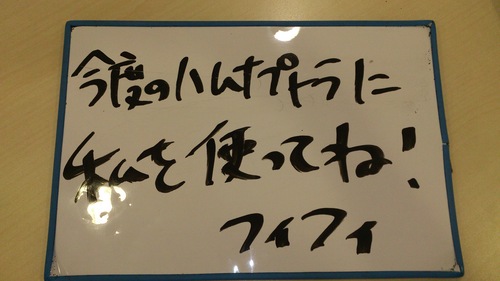 今度のハムナプトラに
私を使ってね!
フィフィ